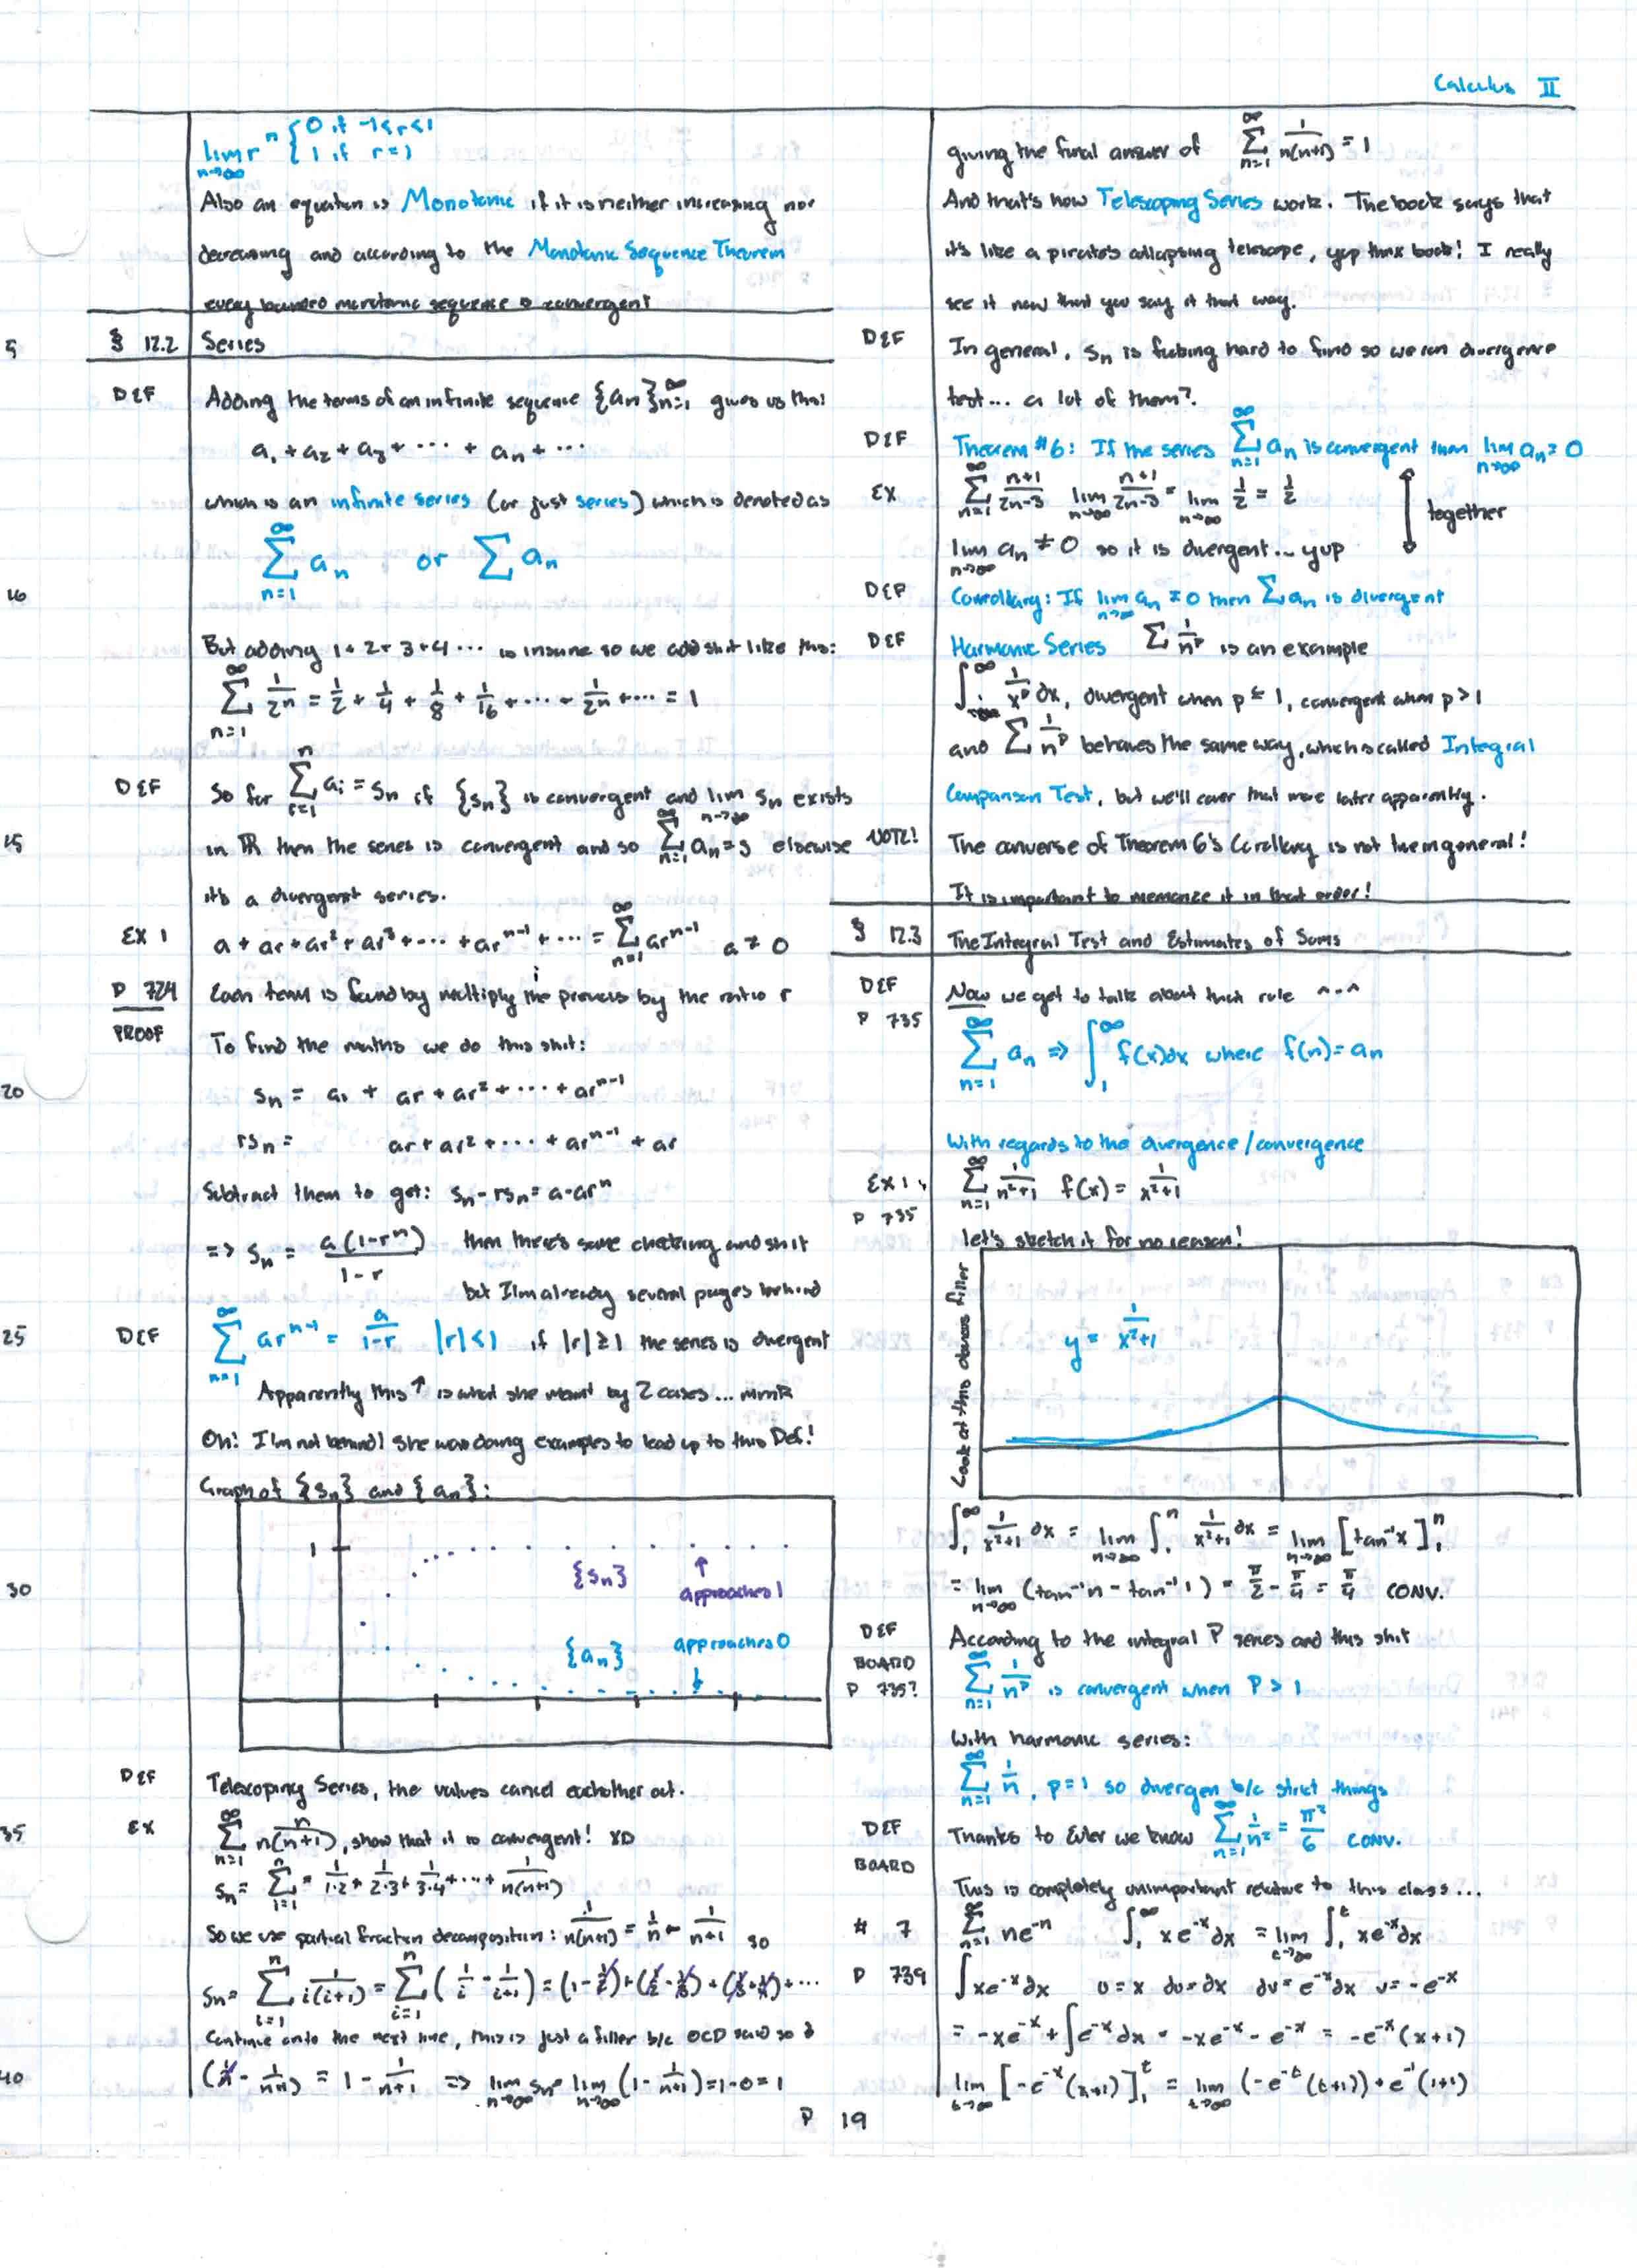 Calculus II
lim r^n { 0 if -1<r<1
n→∞ { 1 if r=1
Also an equation is Monotonic if it is neither increasing nor
decreasing and according to the Monotonic Sequence Theorem
every bounded monotonic sequence is convergent
5 § 12.2 Series
DEF Adding the terms of an infinite sequence {an}∞n=1 gives us this:
a1 + a2 + a3 + ··· + an + ···
which is an infinite series (or just series) which is denoted as
10 ∞Σn=1 an or Σ an
But adding 1+2+3+4··· is insane so we add shit like this:
∞Σn=1 1/2^n = 1/2 + 1/4 + 1/8 + 1/16 + ··· + 1/2^n + ··· = 1
DEF So for nΣi=1 ai = sn if {sn} is convergent and lim n→∞ sn exists
15 in ℝ then the series is convergent and so ∞Σn=1 an = s elsewise
it's a divergent series.
EX 1 a + ar + ar² + ar³ + ··· + ar^n-1 + ··· = ∞Σn=1 ar^n-1 a ≠ 0
P 724 Each term is found by multiply the previous by the ratio r
PROOF To find the maths we do this shit:
20 sn = a1 + ar + ar² + ··· + ar^n-1
rsn = ar + ar² + ··· + ar^n-1 + ar
Subtract them to get: sn - rsn = a - ar^n
=> sn = a(1-r^n)/1-r then there's some checking and shit
but I'm already several pages behind
25 DEF ∞Σn=1 ar^n-1 = a/1-r |r|<1 if |r|≥1 the series is divergent
Apparently this ↑ is what she meant by 2 cases... mmk
Oh! I'm not behind! she was doing examples to lead up to this Def!
Graph of {sn} and {an}:
1
30 {sn} approaches 1
{an} approaches 0
DEF Telescoping Series, the values cancel eachother out.
35 EX ∞Σn=1 n/n(n+1), show that it is convergent! XD
sn = nΣi=1 = 1/1·2 + 1/2·3 + 1/3·4 + ··· + 1/n(n+1)
So we use partial fraction decomposition: 1/n(n+1) = 1/n - 1/n+1 so
sn = nΣi=1 1/i(i+1) = nΣi=1 (1/i - 1/i+1) = (1-1/2)+(1/2-1/3)+(1/3+1/4)+···
Continue onto the next line, this is just a filler b/c OCD said so
40 (1/n - 1/n+1) = 1 - 1/n+1 => lim n→∞ sn = lim n→∞ (1 - 1/n+1) = 1-0 = 1
giving the final answer of ∞Σn=1 1/n(n+1) = 1
And that's how Telescoping Series work. The book says that
it's like a pirate's collapsing telescope, yep thnx book! I really
see it now that you say it that way.
DEF In general, sn is fucking hard to find so we run divergence
test... a lot of them?
DEF Theorem #6: If the series ∞Σn=1 an is convergent then lim n→∞ an = 0
EX ∞Σn=1 n+1/2n-3 lim n→∞ n+1/2n-3 = lim n→∞ 1/2 = 1/2
together
lim n→∞ an ≠ 0 so it is divergent... yup
DEF Corrollary: If lim n→∞ an ≠ 0 then Σ an is divergent
DEF Harmonic Series Σ 1/n^p is an example
∫∞ 1/x^p dx, divergent when p ≤ 1, convergent when p > 1
and Σ 1/n^p behaves the same way, which is called Integral
Comparison Test, but we'll cover that more later apparently.
NOTE! The converse of Theorem 6's Corollary is not true in general!
It is important to memorize it in that order!
§ 12.3 The Integral Test and Estimates of Sums
DEF Now we get to talk about that rule ^-^
P 735 ∞Σn=1 an => ∫1∞ f(x)dx where f(n)=an
With regards to the divergence/convergence
EX 1 ∞Σn=1 1/n²+1 f(x) = 1/x²+1
P 735
let's sketch it for no reason!
Look at this dumbass filler
y = 1/x²+1
∫1∞ 1/x²+1 dx = lim n→∞ ∫1n 1/x²+1 dx = lim n→∞ [tan⁻¹x]1n
= lim n→∞ (tan⁻¹n - tan⁻¹1) = π/2 - π/4 = π/4 CONV.
DEF According to the integral P series and this shit
BOARD
P 735? ∞Σn=1 1/n^p is convergent when P > 1
With harmonic series:
∞Σn=1 1/n, p=1 so divergen b/c strict things
DEF Thanks to Euler we know ∞Σn=1 1/n² = π²/6 CONV.
BOARD
This is completely unimportant relative to this class...
# 7 ∞Σn=1 ne^-n ∫1∞ xe^-x dx = lim t→∞ ∫1t xe^-x dx
P 739 ∫xe^-x dx u=x du=dx dv=e^-x dx v=-e^-x
= -xe^-x + ∫e^-x dx = -xe^-x - e^-x = -e^-x(x+1)
lim t→∞ [-e^-x(x+1)]1t = lim t→∞ (-e^-t(t+1)) + e^-1(1+1)
P 19